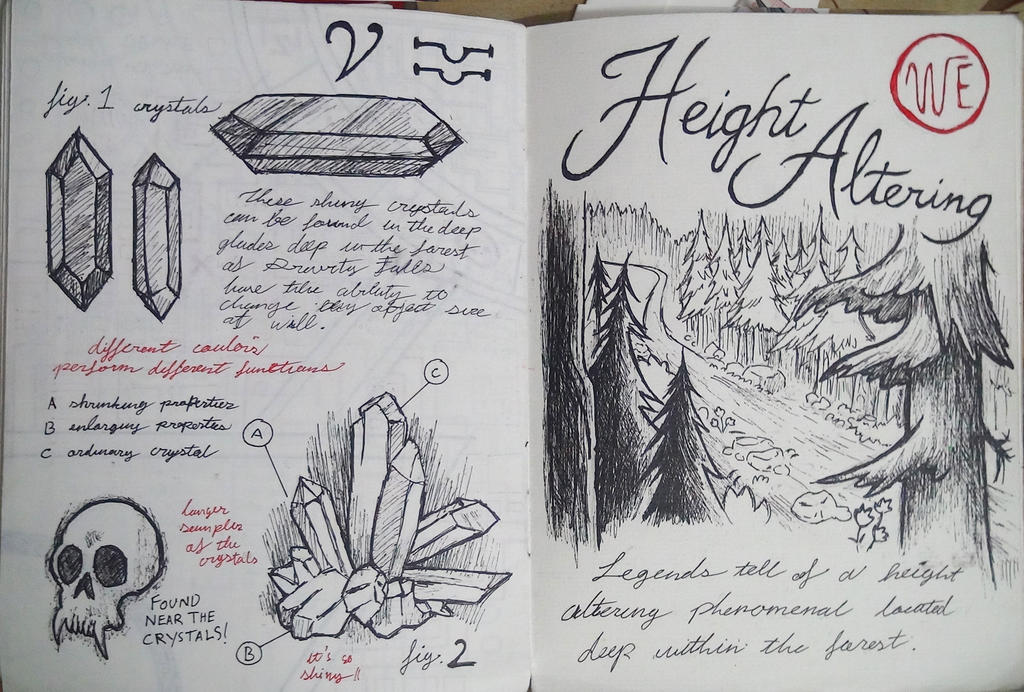 fig. 1 crystals
These shiny crystals
can be found in the deep
glades deep in the forest
of Gravity Falls
have the ability to
change any object size
at will.
different coulors
perform different functions
A shrinking properties
B enlarging properties
C ordinary crystal
C
A
larger
samples
of the
crystals
FOUND
NEAR THE
CRYSTALS!
B
it's so
shiny!!
fig. 2
WE
Height
Altering
Legends tell of a height
altering phenomenal located
deep within the forest.